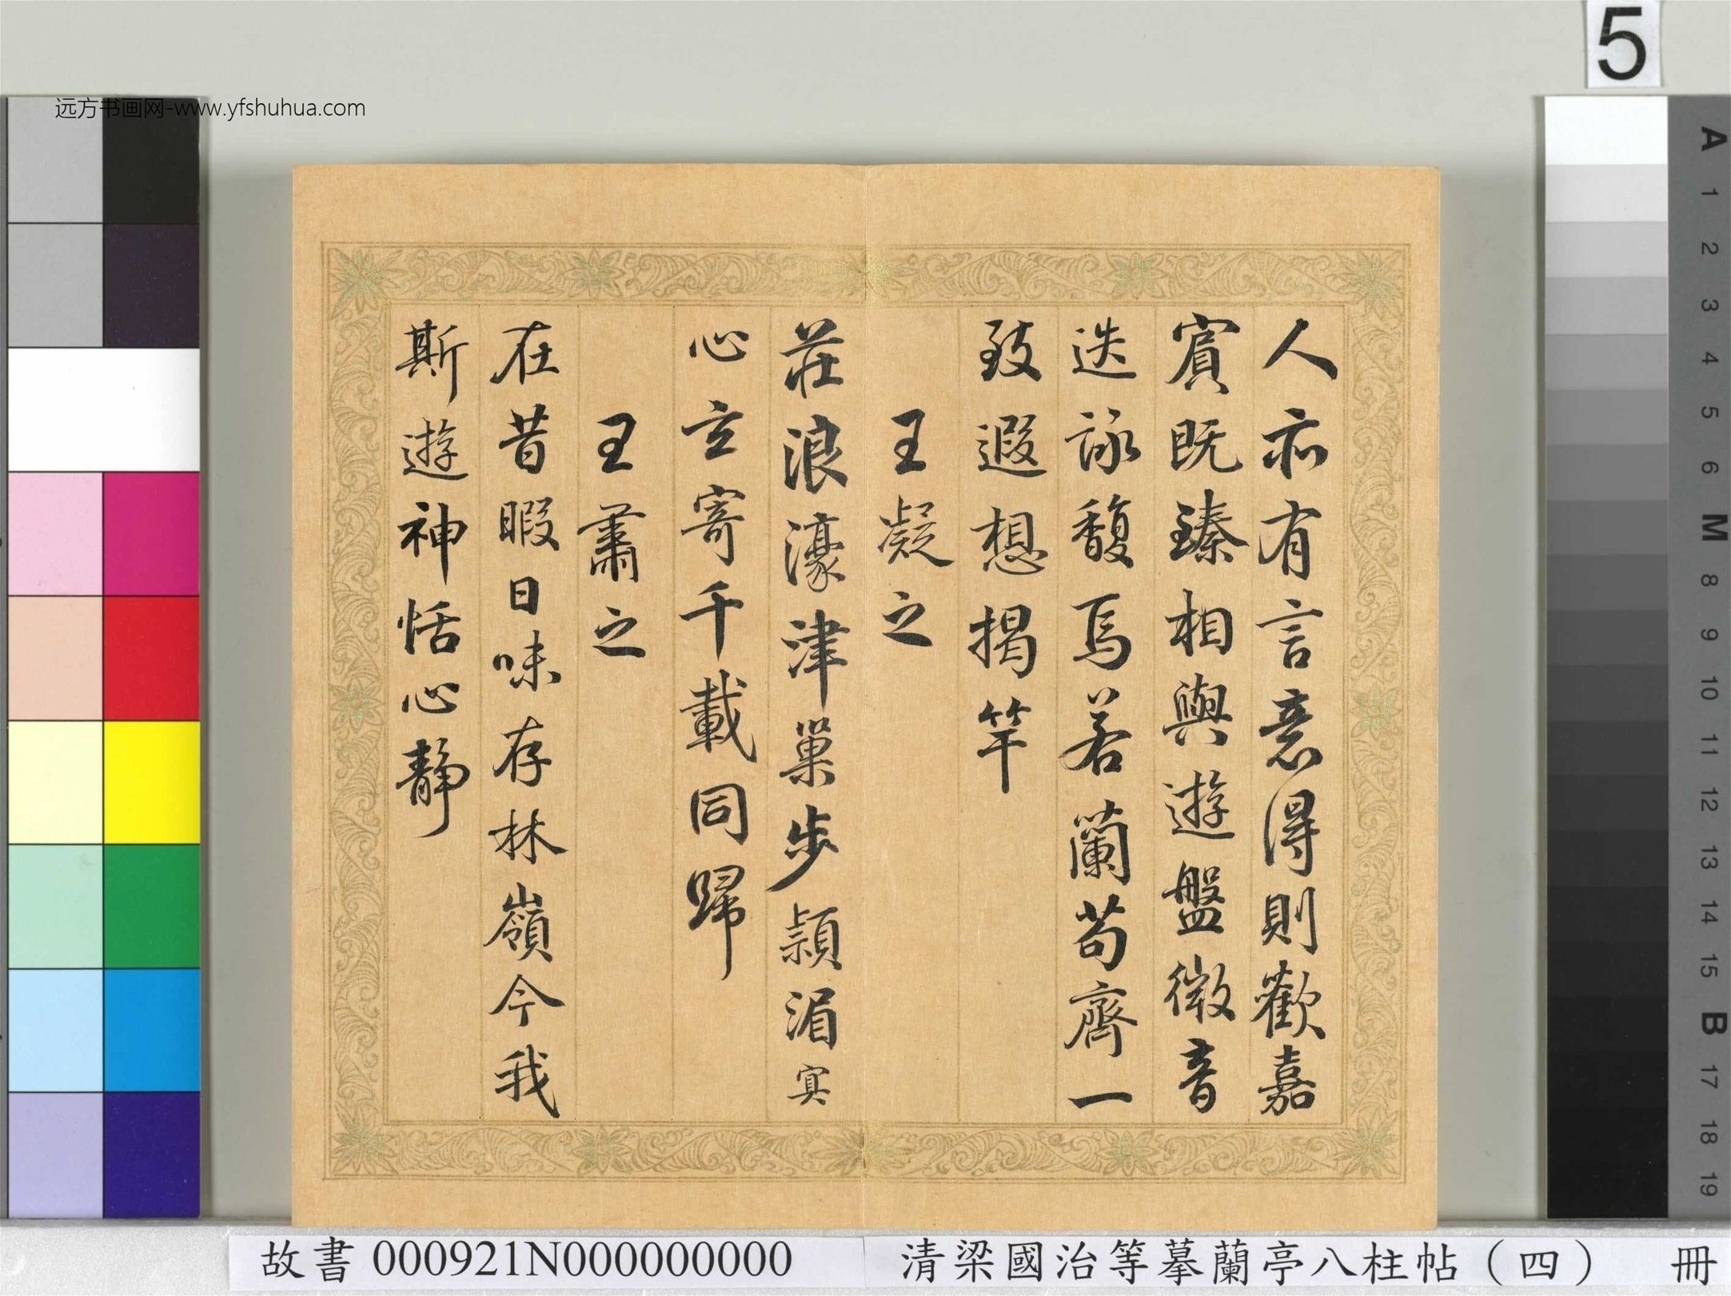 5
远方书画网-www.yfshuhua.com
人亦有言意得則歡嘉
賓既臻相與遊盤微音
迭詠馥焉若蘭苟齊一
致遐想揭竿
王凝之
莊浪濠津巢步潁湄寘
心玄寄千載同歸
王肅之
在昔暇日味存林嶺今我
斯遊神恬心靜
A
1
2
3
4
5
6
M
8
9
10
11
12
13
14
15
B
17
18
19
故書 000921N000000000 清梁國治等摹蘭亭八柱帖（四） 冊